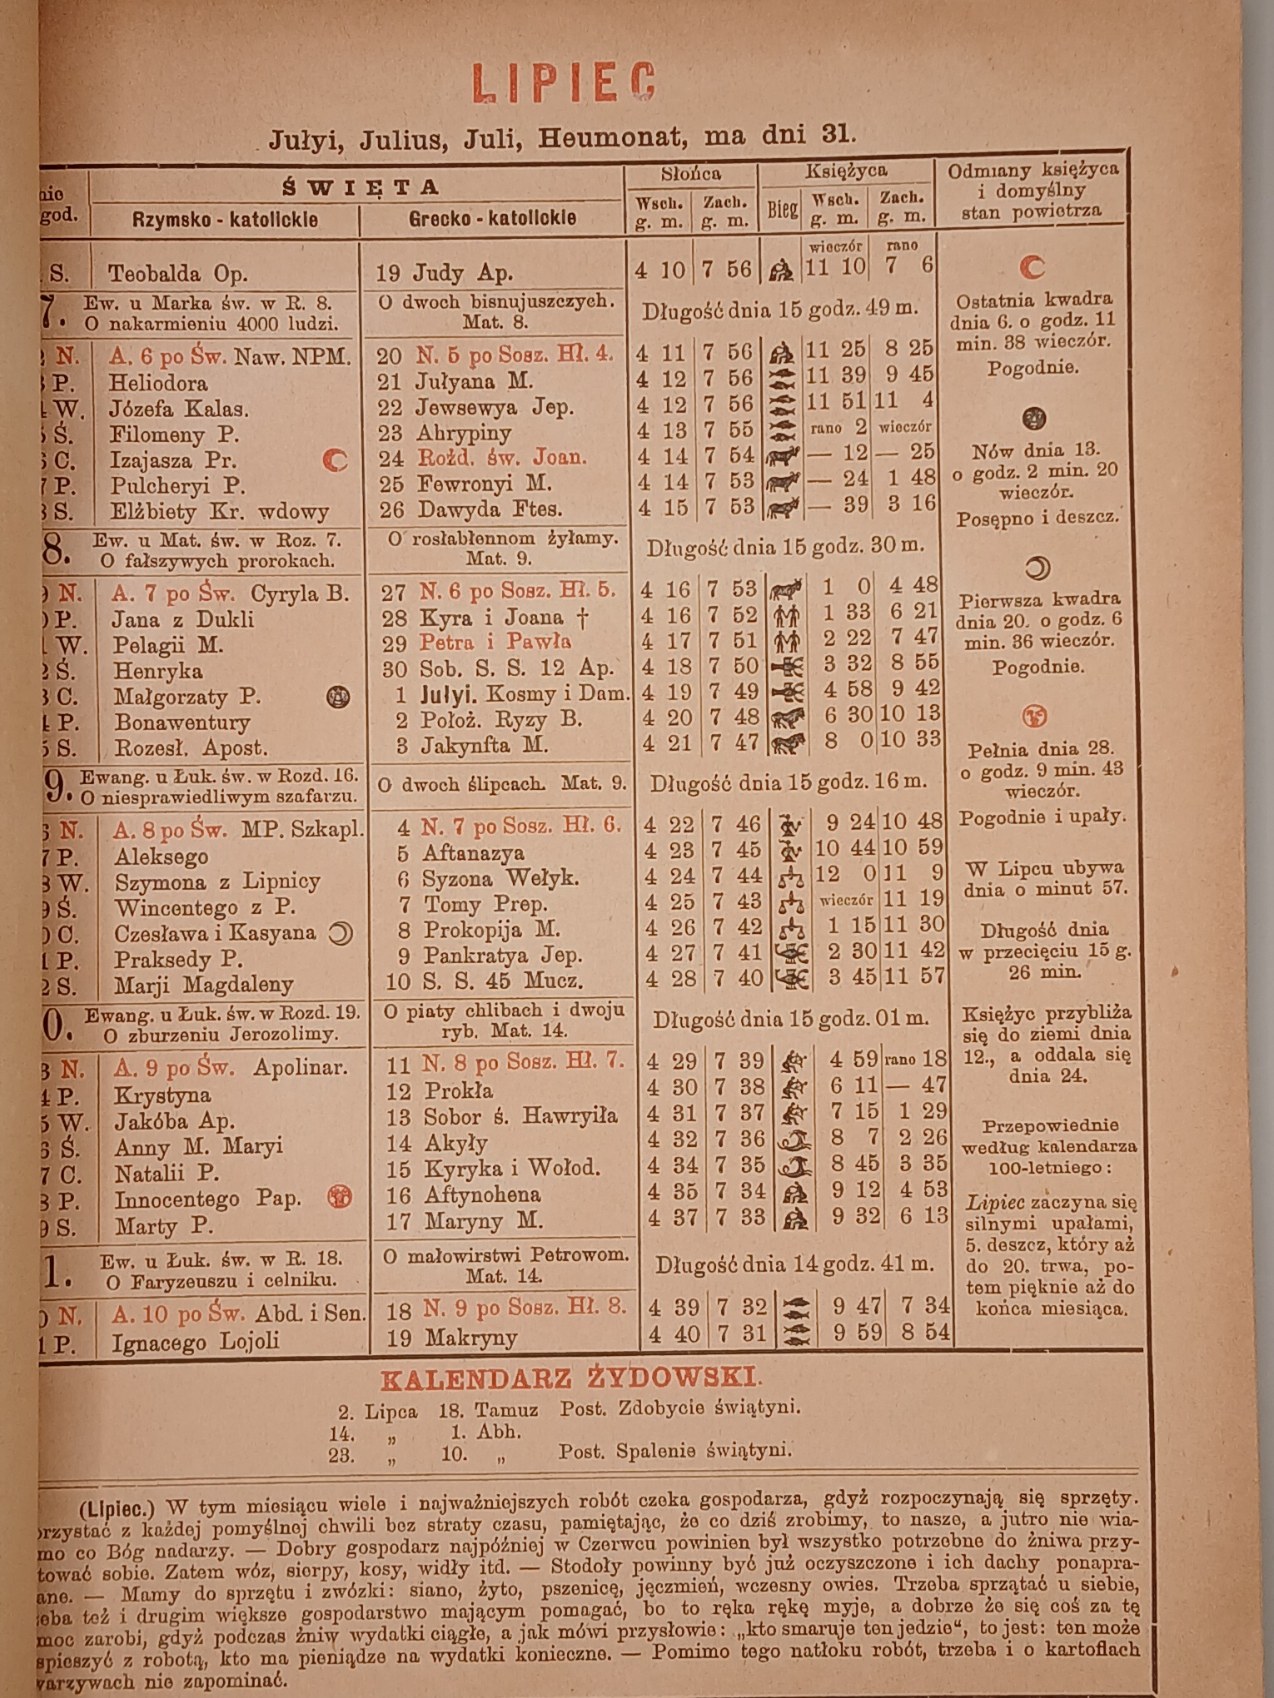 LIPIEC
Jułyi, Julius, Juli, Heumonat, ma dni 31.
nio god. ŚWIĘTA Słońca Księżyca Odmiany księżyca
i domyślny
stan powietrza
Rzymsko - katolickie Grecko - katolickie Wsch. g. m. Zach. g. m. Bieg Wsch. g. m. Zach. g. m.
wieczór rano
S. Teobalda Op. 19 Judy Ap. 4 10 7 56 11 10 7 6
7. Ew. u Marka św. w R. 8. O dwoch bisnujuszczych. Długość dnia 15 godz. 49 m.
O nakarmieniu 4000 ludzi. Mat. 8.
N. A. 6 po Św. Naw. NPM. 20 N. 5 po Sosz. Hł. 4. 4 11 7 56 11 25 8 25
P. Heliodora 21 Jułyana M. 4 12 7 56 11 39 9 45
W. Józefa Kalas. 22 Jewsewya Jep. 4 12 7 56 11 51 11 4
Ś. Filomeny P. 23 Ahrypiny 4 13 7 55 rano 2 wieczór
C. Izajasza Pr. 24 Rożd. św. Joan. 4 14 7 54 — 12 — 25
P. Pulcheryi P. 25 Fewronyi M. 4 14 7 53 — 24 1 48
S. Elżbiety Kr. wdowy 26 Dawyda Ftes. 4 15 7 53 — 39 3 16
8. Ew. u Mat. św. w Roz. 7. O rosłabłennom żyłamy. Długość dnia 15 godz. 30 m.
O fałszywych prorokach. Mat. 9.
N. A. 7 po Św. Cyryla B. 27 N. 6 po Sosz. Hł. 5. 4 16 7 53 1 0 4 48
P. Jana z Dukli 28 Kyra i Joana † 4 16 7 52 1 33 6 21
W. Pelagii M. 29 Petra i Pawła 4 17 7 51 2 22 7 47
Ś. Henryka 30 Sob. S. S. 12 Ap. 4 18 7 50 3 32 8 55
C. Małgorzaty P. 1 Jułyi. Kosmy i Dam. 4 19 7 49 4 58 9 42
P. Bonawentury 2 Położ. Ryzy B. 4 20 7 48 6 30 10 13
S. Rozesł. Apost. 3 Jakynfta M. 4 21 7 47 8 0 10 33
9. Ewang. u Łuk. św. w Rozd. 16. O dwoch ślipcach. Mat. 9. Długość dnia 15 godz. 16 m.
O niesprawiedliwym szafarzu.
N. A. 8 po Św. MP. Szkapl. 4 N. 7 po Sosz. Hł. 6. 4 22 7 46 9 24 10 48
P. Aleksego 5 Aftanazya 4 23 7 45 10 44 10 59
W. Szymona z Lipnicy 6 Syzona Wełyk. 4 24 7 44 12 0 11 9
Ś. Wincentego z P. 7 Tomy Prep. 4 25 7 43 wieczór 11 19
C. Czesława i Kasyana 8 Prokopija M. 4 26 7 42 1 15 11 30
P. Praksedy P. 9 Pankratya Jep. 4 27 7 41 2 30 11 42
S. Marji Magdaleny 10 S. S. 45 Mucz. 4 28 7 40 3 45 11 57
0. Ewang. u Łuk. św. w Rozd. 19. O piaty chlibach i dwoju Długość dnia 15 godz. 01 m.
O zburzeniu Jerozolimy. ryb. Mat. 14.
N. A. 9 po Św. Apolinar. 11 N. 8 po Sosz. Hł. 7. 4 29 7 39 4 59 rano 18
P. Krystyna 12 Prokła 4 30 7 38 6 11 — 47
W. Jakóba Ap. 13 Sobor ś. Hawryiła 4 31 7 37 7 15 1 29
Ś. Anny M. Maryi 14 Akyły 4 32 7 36 8 7 2 26
C. Natalii P. 15 Kyryka i Wołod. 4 34 7 35 8 45 3 35
P. Innocentego Pap. 16 Aftynohena 4 35 7 34 9 12 4 53
S. Marty P. 17 Maryny M. 4 37 7 33 9 32 6 13
1. Ew. u Łuk. św. w R. 18. O małowirstwi Petrowom. Długość dnia 14 godz. 41 m.
O Faryzeuszu i celniku. Mat. 14.
N. A. 10 po Św. Abd. i Sen. 18 N. 9 po Sosz. Hł. 8. 4 39 7 32 9 47 7 34
P. Ignacego Lojoli 19 Makryny 4 40 7 31 9 59 8 54
Ostatnia kwadra
dnia 6. o godz. 11
min. 38 wieczór.
Pogodnie.
Nów dnia 13.
o godz. 2 min. 20
wieczór.
Posępno i deszcz.
Pierwsza kwadra
dnia 20. o godz. 6
min. 36 wieczór.
Pogodnie.
Pełnia dnia 28.
o godz. 9 min. 43
wieczór.
Pogodnie i upały.
W Lipcu ubywa
dnia o minut 57.
Długość dnia
w przecięciu 15 g.
26 min.
Księżyc przybliża
się do ziemi dnia
12., a oddala się
dnia 24.
Przepowiednie
według kalendarza
100-letniego:
Lipiec zaczyna się
silnymi upałami,
5. deszcz, który aż
do 20. trwa, po-
tem pięknie aż do
końca miesiąca.
KALENDARZ ŻYDOWSKI.
2. Lipca 18. Tamuz Post. Zdobycie świątyni.
14. „ 1. Abh.
23. „ 10. „ Post. Spalenie świątyni.
(Lipiec.) W tym miesiącu wiele i najważniejszych robót czeka gospodarza, gdyż rozpoczynają się sprzęty.
rzystać z każdej pomyślnej chwili bez straty czasu, pamiętając, że co dziś zrobimy, to nasze, a jutro nie wia-
mo co Bóg nadarzy. — Dobry gospodarz najpóźniej w Czerwcu powinien był wszystko potrzebne do żniwa przy-
tować sobie. Zatem wóz, sierpy, kosy, widły itd. — Stodoły powinny być już oczyszczone i ich dachy ponapra-
ane. — Mamy do sprzętu i zwózki: siano, żyto, pszenicę, jęczmień, wczesny owies. Trzeba sprzątać u siebie,
eba też i drugim większe gospodarstwo mającym pomagać, bo to ręka rękę myje, a dobrze że się coś za tę
moc zarobi, gdyż podczas żniw wydatki ciągłe, a jak mówi przysłowie: „kto smaruje ten jedzie“, to jest: ten może
spieszyć z robotą, kto ma pieniądze na wydatki konieczne. — Pomimo tego natłoku robót, trzeba i o kartoflach
warzywach nie zapominać.